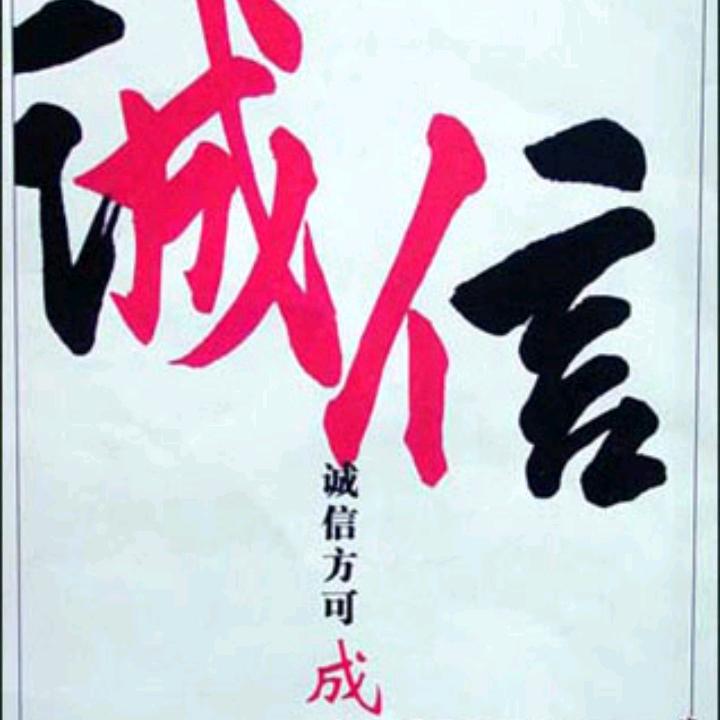 诚信
诚信方可
成